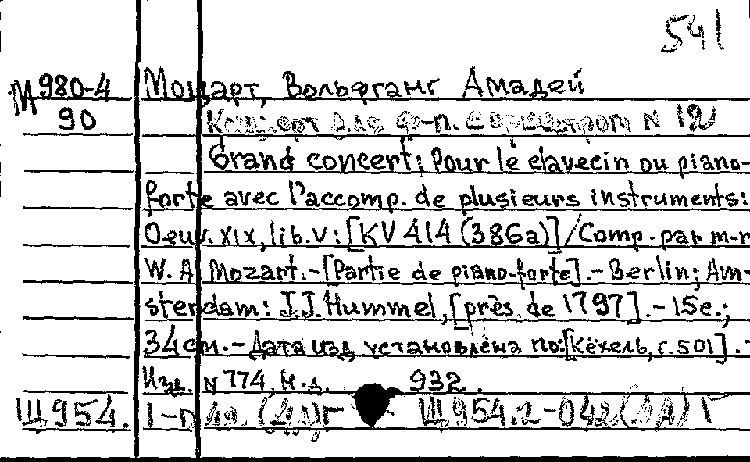 541
М980-4 Моцарт, Вольфганг Амадей
90 Концерт для ф-п. с оркестром N 12
Grand concert; Pour le clavecin ou piano-
forte avec l'accomp. de plusieurs instruments:
Oeuv. XIX, lib. V: [KV 414 (386a)]/Comp. par m-r
W. A. Mozart. - [Partie de piano-forte]. - Berlin; Am-
sterdam: J.J. Hummel, [près de 1797]. - 15c.;
34 см. - Дата изд. установлена по: [Кёхель, с. 501]. -
Изд. N 774, н.д. 932.
Щ954. Щ954.2-042